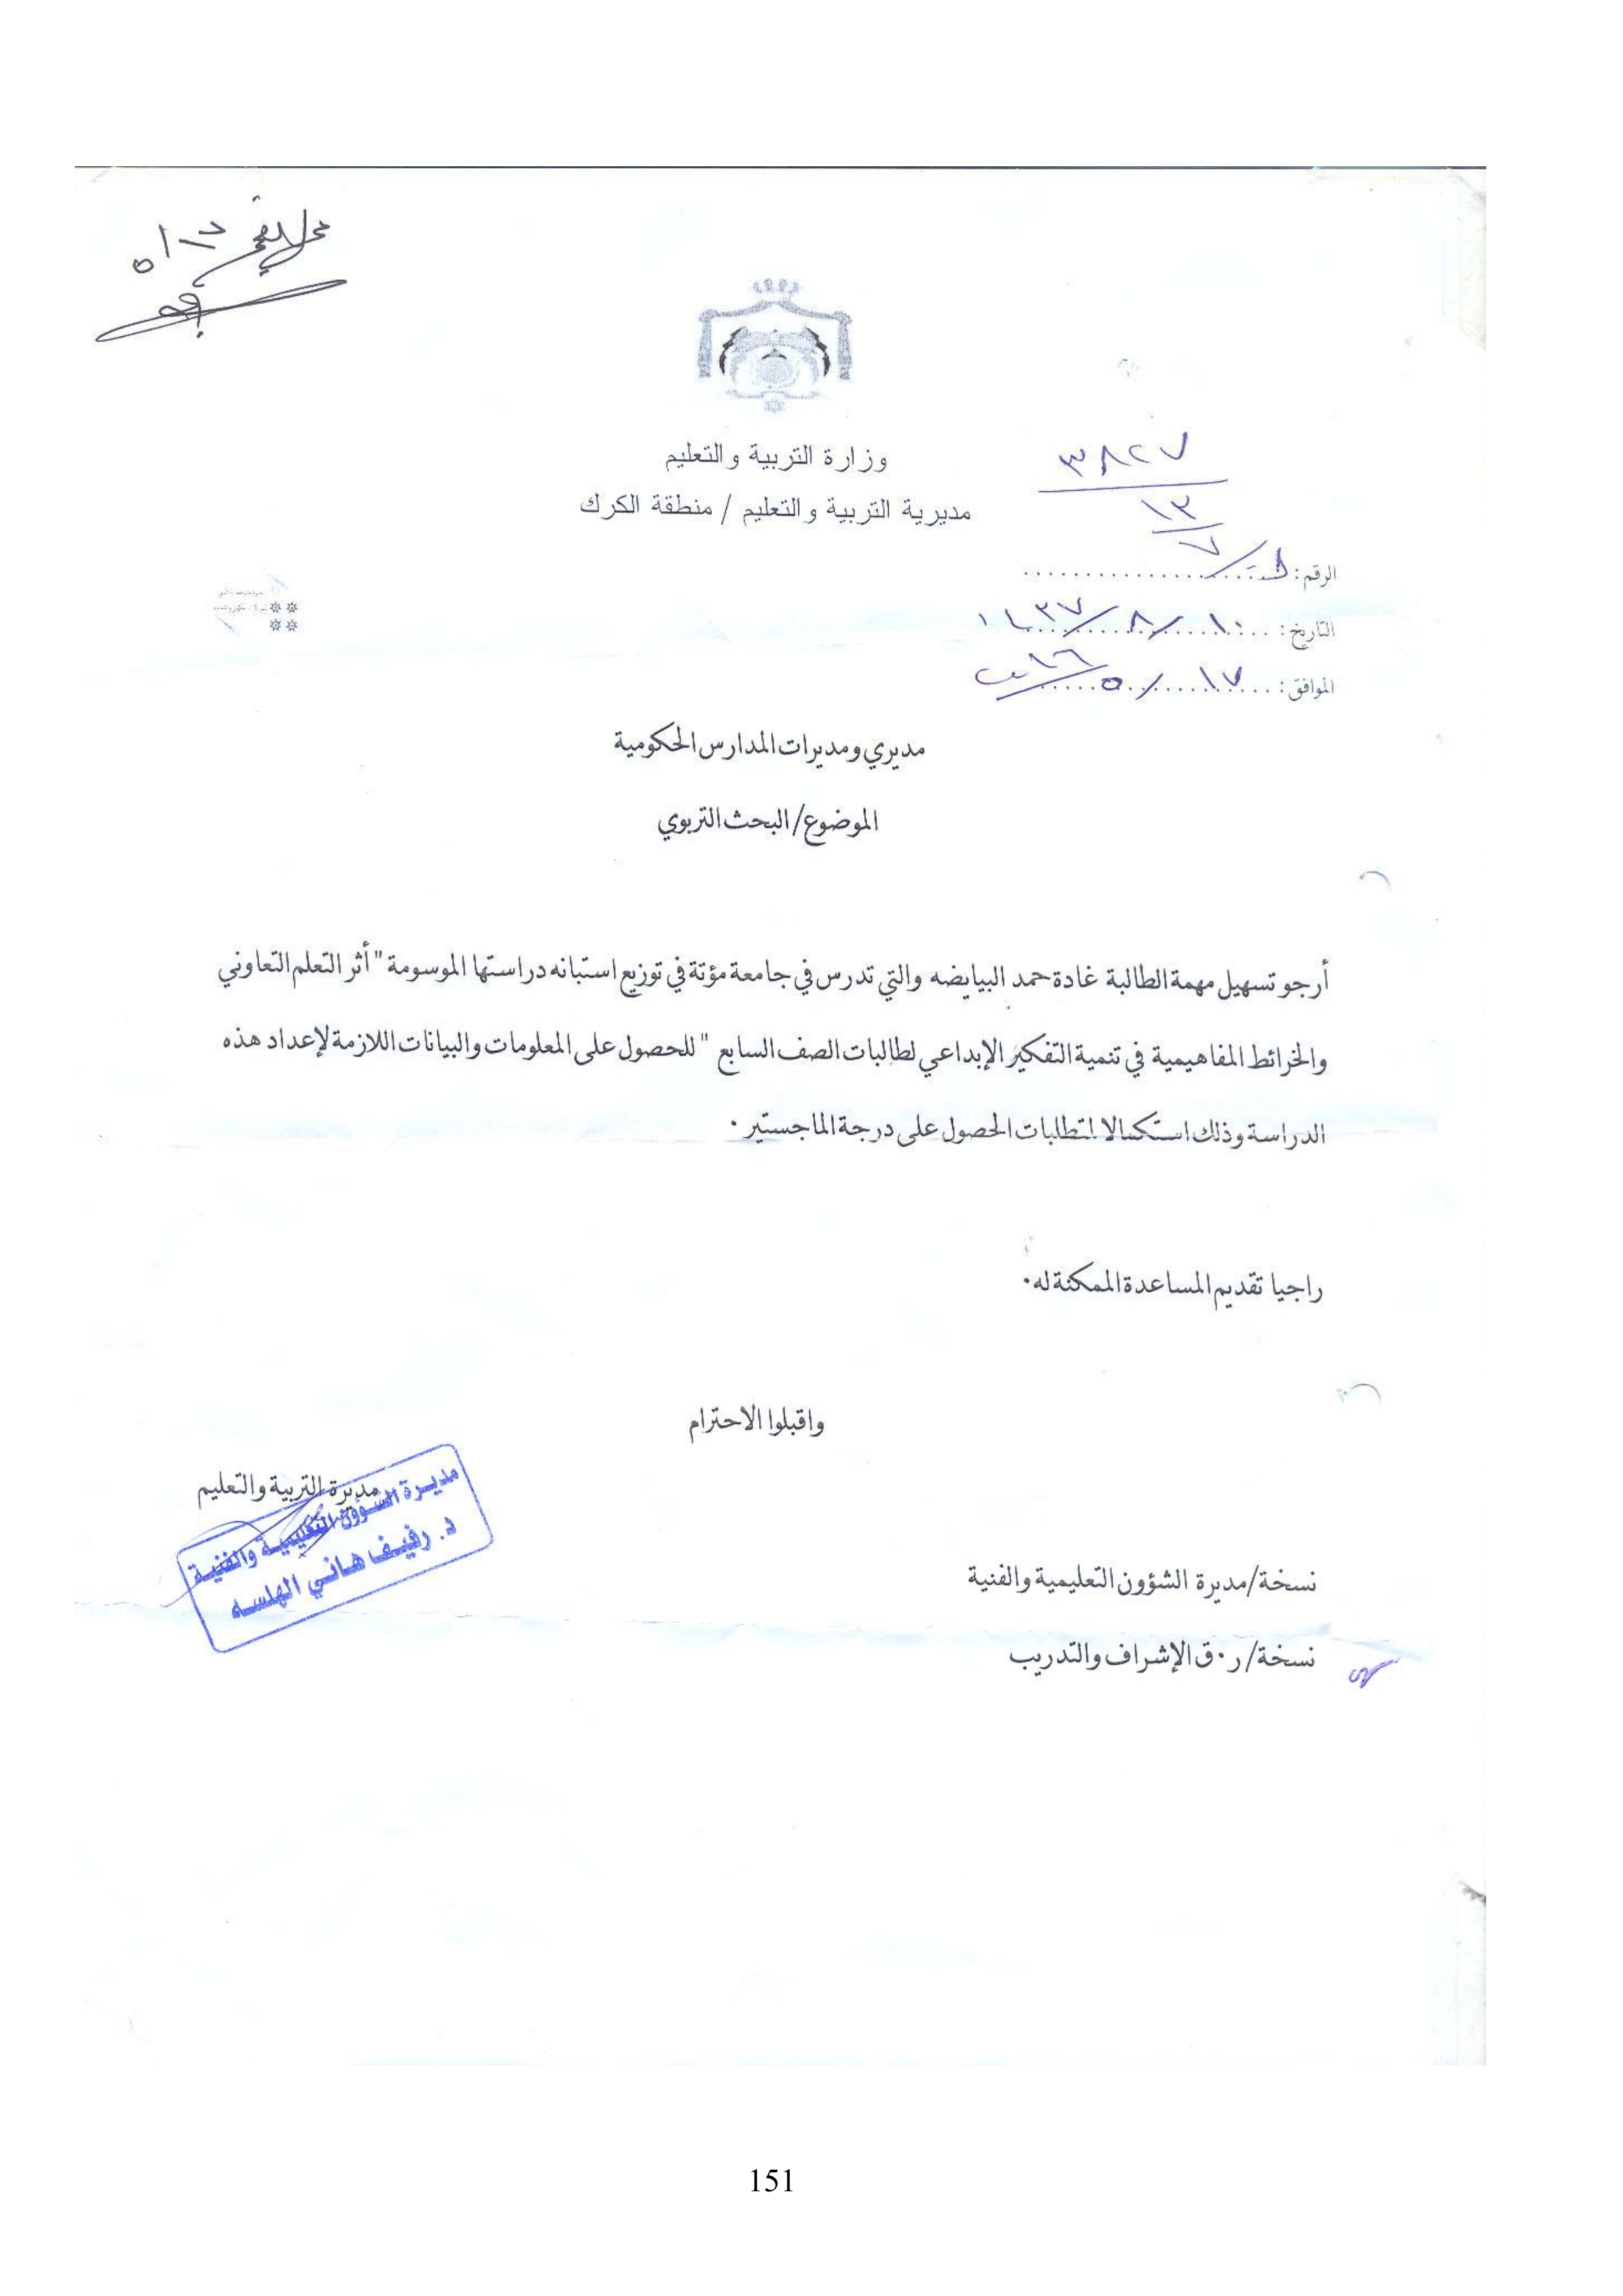 وزارة التربية والتعليم
مديرية التربية والتعليم / منطقة الكرك
٣٨٢٧
١٣
٧
الرقم:
التاريخ: ١٠/٨/١٤٣٧
الموافق: ١٧/٥/٢٠١٦
مديري ومديرات المدارس الحكومية
الموضوع/ البحث التربوي
أرجو تسهيل مهمة الطالبة غادة حمد البيايضه والتي تدرس في جامعة مؤتة في توزيع استبانه دراستها الموسومة "أثر التعلم التعاوني
والخرائط المفاهيمية في تنمية التفكير الإبداعي لطالبات الصف السابع " للحصول على المعلومات والبيانات اللازمة لإعداد هذه
الدراسة وذلك استكمالا لمتطلبات الحصول على درجة الماجستير .
راجيا تقديم المساعدة الممكنة له.
واقبلوا الاحترام
مديرة التربية والتعليم
مديرة الشؤون التعليمية والفنية
د. رفيف هاني الهلسه
نسخة/ مديرة الشؤون التعليمية والفنية
نسخة/ ر.ق الإشراف والتدريب
151